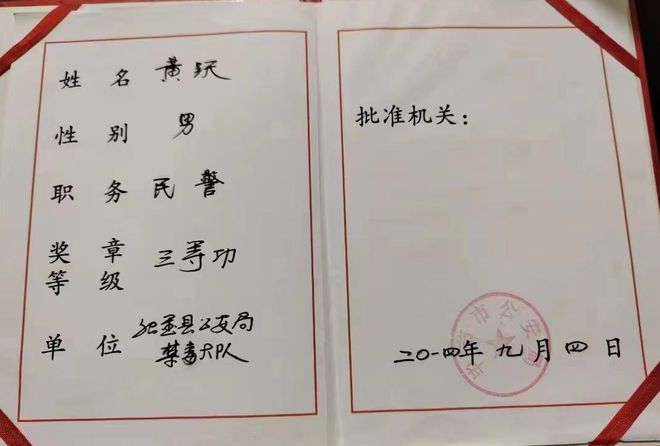 姓名 黄跃
性别 男
职务 民警
奖章
等级 三等功
单位 县公安局
禁毒大队
批准机关：
市公安局
二〇一四年九月四日